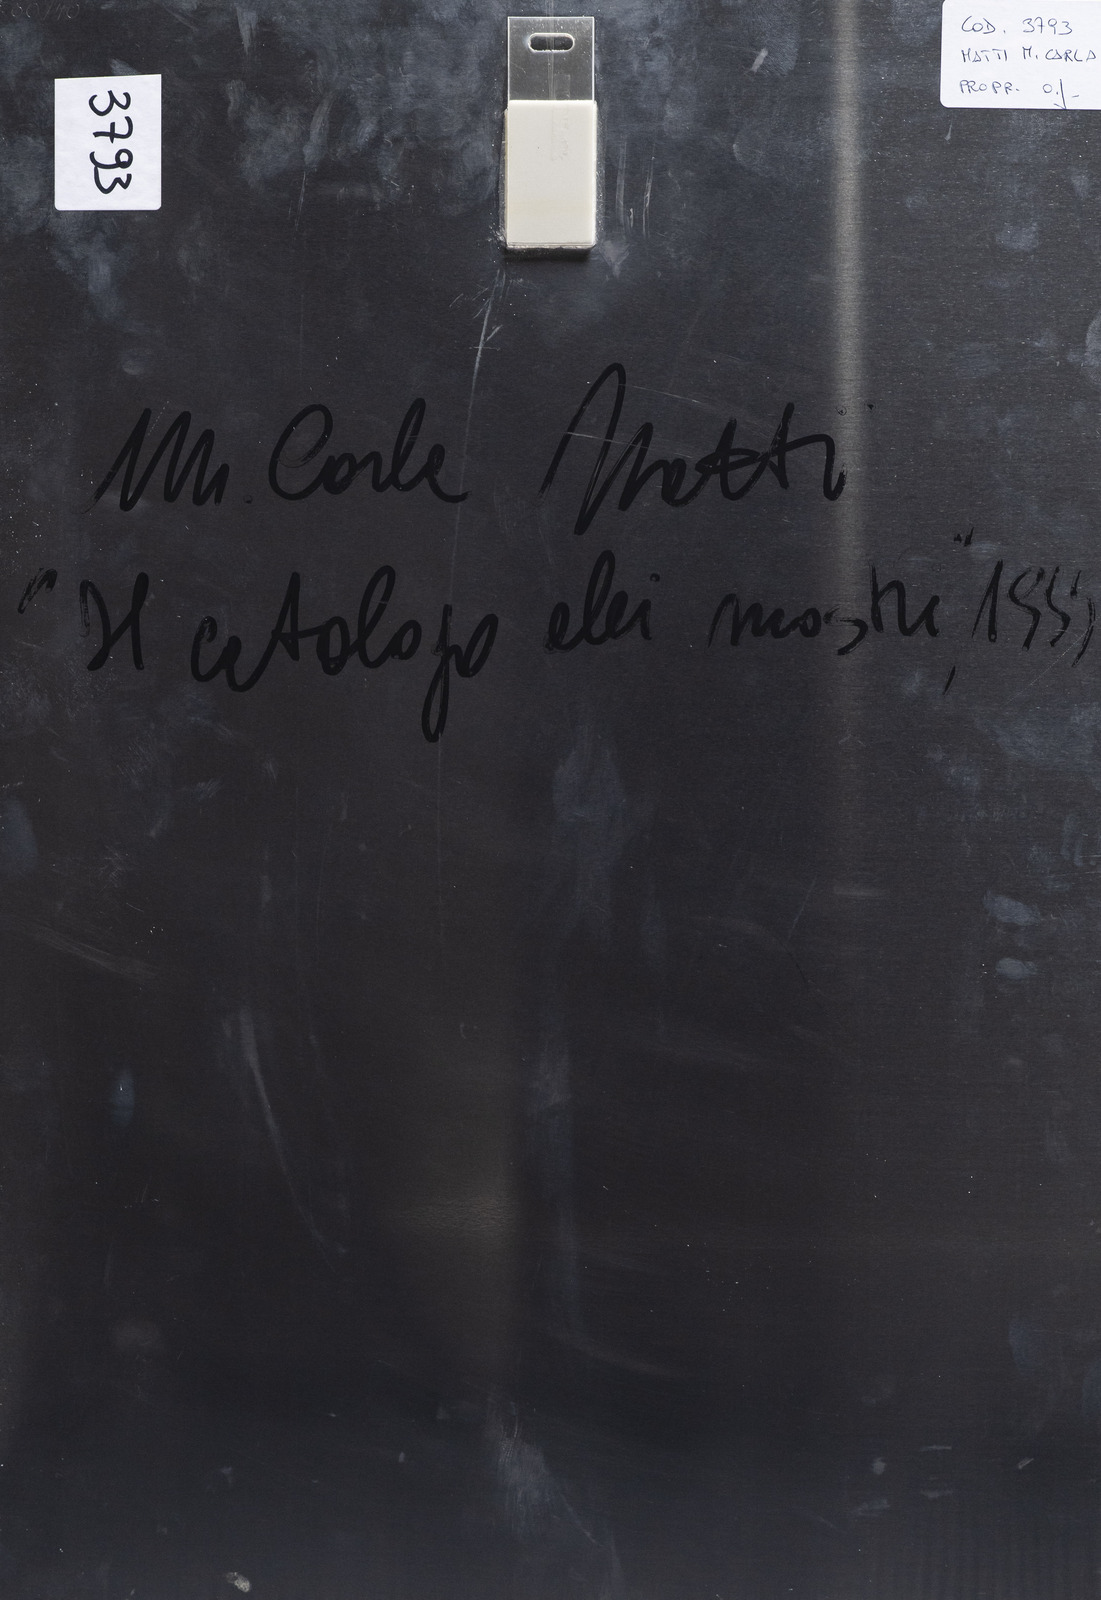 COD. 3793
MATTI M. CARLA
PROPR.
3793
M. Carla Matti
"Il catalogo dei mostri",